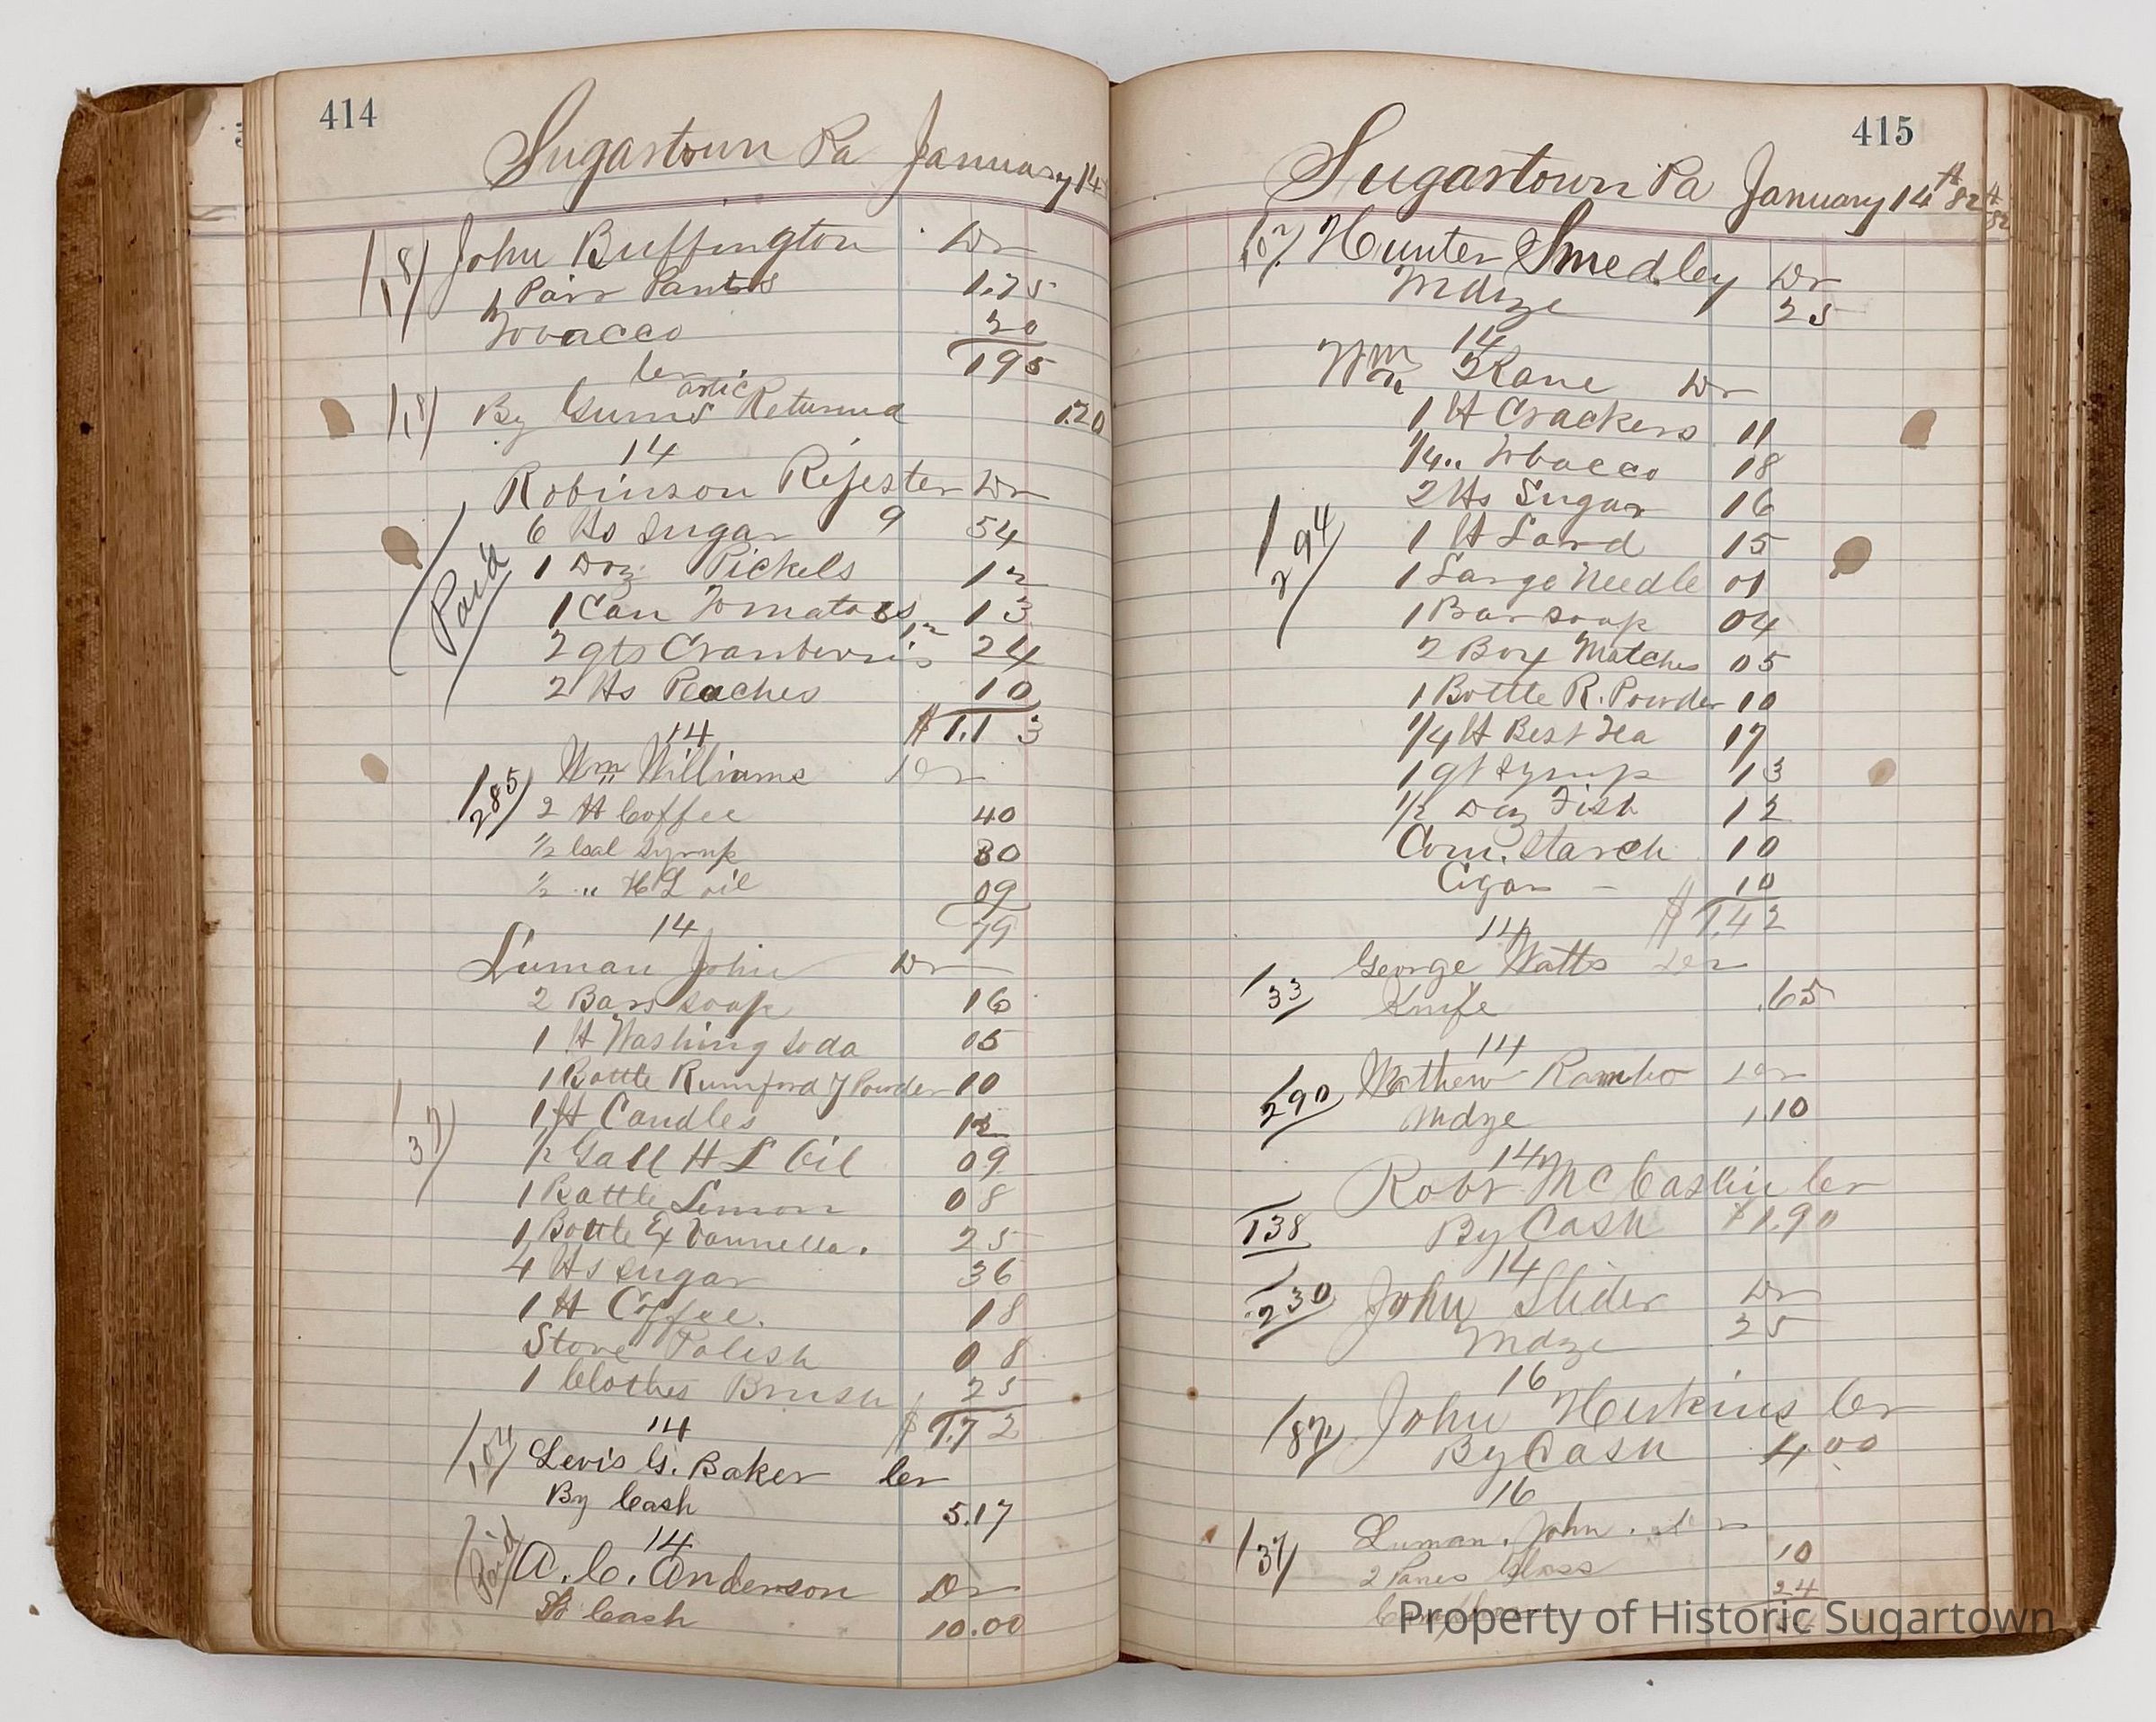 414
Sugartown Pa January 14
118 John Buffington Dr
1 Pair Pants 1.75
Tobacco 20
195
Cr
118 By Gums artic Returned 1.20
14
Robinson Rejester Dr
Paid
6 lbs Sugar 9 54
1 Doz Pickels 12
1 Can Tomatoes 13
2 qts Cranberris 12 24
2 lbs Peaches 10
$1.13
14
285 Wm Williams Dr
2 lb Coffee 40
1/2 Gal Syrup 30
1/2 " H L oil 09
79
14
Luman John Dr
37
2 Bars soap 16
1 lb Washing soda 05
1 Bottle Rumford Y Powder 10
1 lb Candles 12
1/2 Gall H L Oil 09
1 Bottle Lemon 08
1 Bottle Ex Vannella. 25
4 lbs sugar 36
1 lb Coffee. 18
Stove Polish 08
1 Clothes Brush 25
$1.72
14
104 Levis G. Baker Cr
By Cash 5.17
14
Paid A. C. Anderson Dr
To Cash 10.00
415
Sugartown Pa January 14th 82
107 Hunter Smedley Dr
Mdze 25
14
Wm Kane Dr
294
1 lb Crackers 11
1/4 " Tobacco 18
2 lbs Sugar 16
1 lb Lard 15
1 Large Needle 01
1 Bar soap 04
2 Box Matches 05
1 Bottle R. Powder 10
1/4 lb Best Tea 17
1 qt Syrup 13
1/2 Doz Fish 12
Corn. Starch 10
Cigars - 10
$1.42
14
33 George Watts Dr
Knife .65
14
290 Mathew Rambo Dr
Mdze 1.10
14
Robt McCaslin Cr
138 By Cash $1.90
14
230 John Slider Dr
Mdze 25
16
187 John Herkins Cr
By Cash 4.00
16
37 Luman. John. Dr
2 Panes Glass 10
24
Property of Historic Sugartown